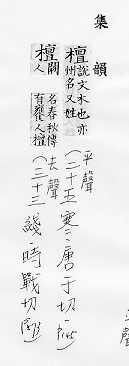 集韻
檀說文木也亦
州名又姓
平聲
(二十五寒:唐干切
檀闕
人
名春秋傳
有甕人檀
去聲
(三十三綫:時戰切